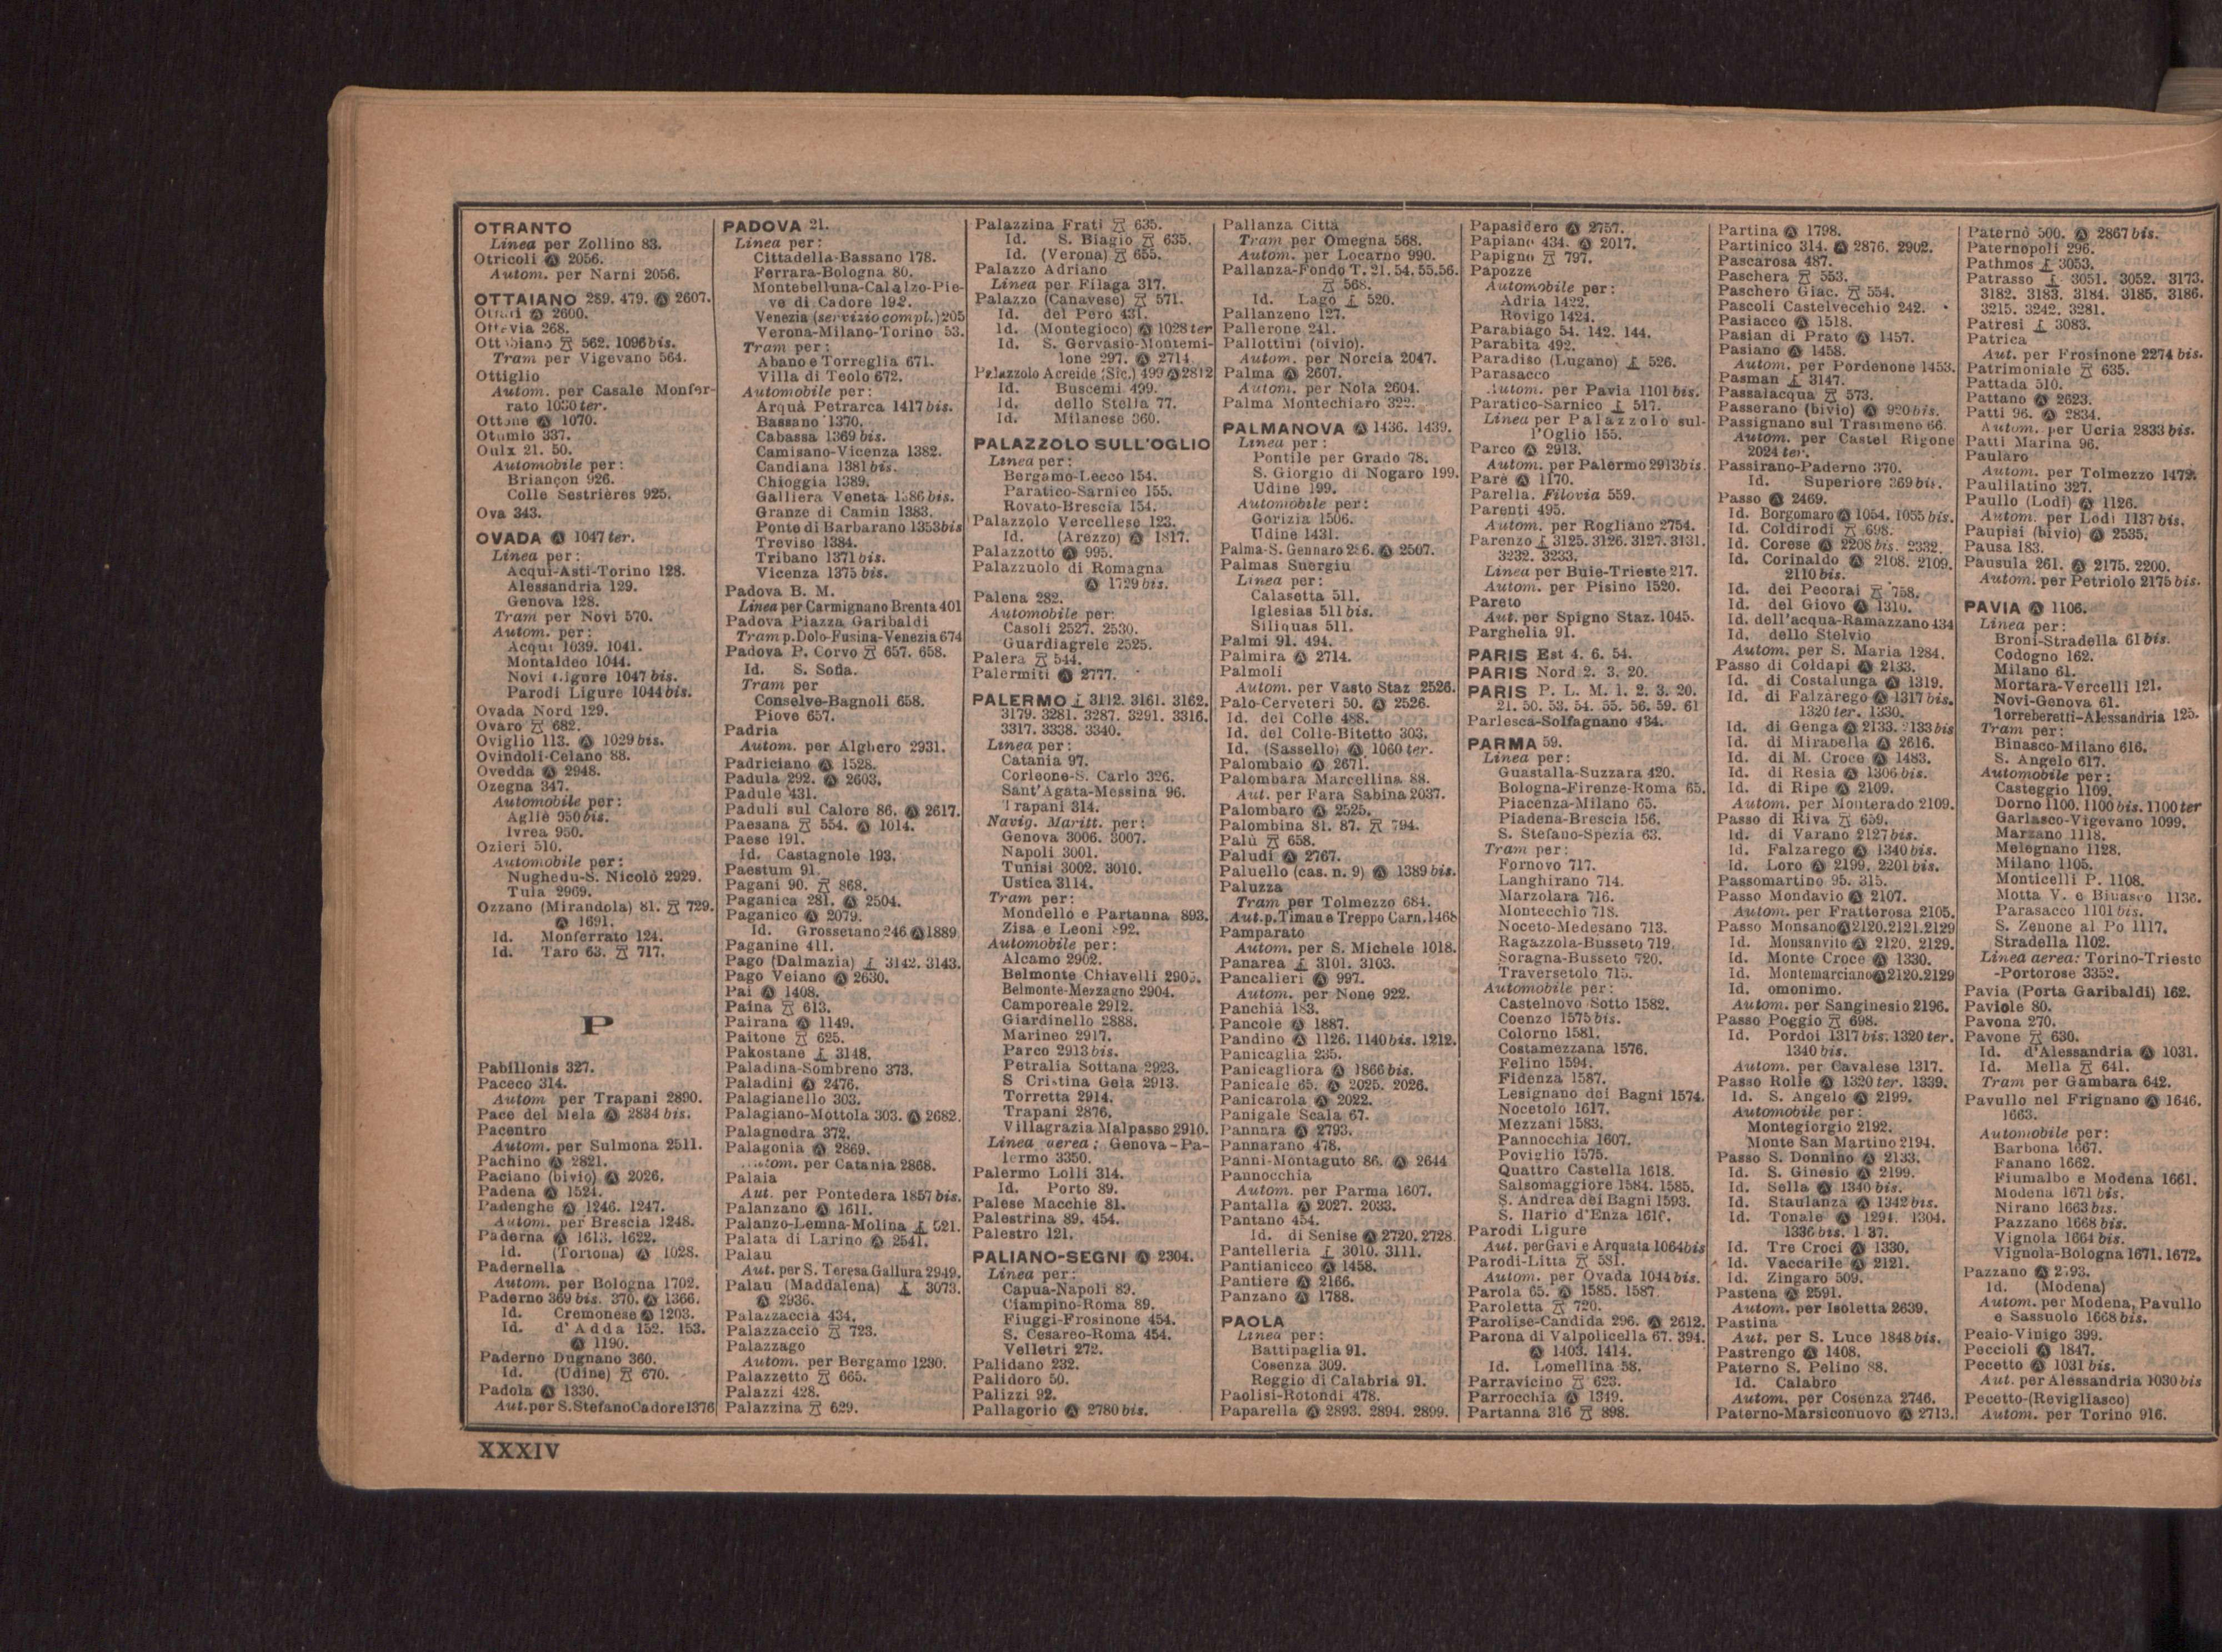 OTRANTO
Linea per Zollino 83.
Otricoli Ⓐ 2056.
Autom. per Narni 2056.
OTTAIANO 289. 479. Ⓐ 2607.
Ⓐ 2600.
268.
562. 1096 bis.
Tram per Vigevano 564.
Ottiglio
Autom. per Casale Monfer-
rato 1030 ter.
Ottone Ⓐ 1070.
Otumlo 337.
Oulx 21. 50.
Automobile per:
Briançon 926.
Colle Sestrières 925.
Ova 343.
OVADA Ⓐ 1047 ter.
Linea per:
Acqui-Asti-Torino 128.
Alessandria 129.
Genova 128.
Tram per Novi 570.
Autom. per:
Acqui 1039. 1041.
Montaldeo 1044.
Novi Ligure 1047 bis.
Parodi Ligure 1044 bis.
Ovada Nord 129.
Ovaro 682.
Oviglio 113. Ⓐ 1029 bis.
Ovindoli-Celano 88.
Ovedda Ⓐ 2948.
Ozegna 347.
Automobile per:
Agliè 950 bis.
Ivrea 950.
Ozieri 510.
Automobile per:
Nughedu-S. Nicolò 2929.
Tula 2969.
Ozzano (Mirandola) 81. 729.
Ⓐ 1691.
Id. Monferrato 124.
Id. Taro 63. 717.
P
Pabillonis 327.
Paceco 314.
Autom per Trapani 2890.
Pace del Mela Ⓐ 2834 bis.
Pacentro
Autom. per Sulmona 2511.
Pachino Ⓐ 2821.
Paciano (bivio) Ⓐ 2026.
Padena Ⓐ 1524.
Padenghe Ⓐ 1246. 1247.
Autom. per Brescia 1248.
Paderna Ⓐ 1613. 1622.
Id. (Tortona) Ⓐ 1028.
Padernella
Autom. per Bologna 1702.
Paderno 369 bis. 370. Ⓐ 1366.
Id. Cremonese Ⓐ 1203.
Id. d'Adda 152. 153.
Ⓐ 1190.
Paderno Dugnano 360.
Id. (Udine) 670.
Padola Ⓐ 1330.
Aut. per S. Stefano Cadore 1376
PADOVA 21.
Linea per:
Cittadella-Bassano 178.
Ferrara-Bologna 80.
Montebelluna-Calalzo-Pie-
ve di Cadore 192.
Venezia (servizio compl.) 205
Verona-Milano-Torino 53.
Tram per:
Abano e Torreglia 671.
Villa di Teolo 672.
Automobile per:
Arquà Petrarca 1417 bis.
Bassano 1370.
Cabassa 1369 bis.
Camisano-Vicenza 1382.
Candiana 1381 bis.
Chioggia 1389.
Galliera Veneta 1386 bis.
Granze di Camin 1383.
Ponte di Barbarano 1353 bis
Treviso 1384.
Tribano 1371 bis.
Vicenza 1375 bis.
Padova B. M.
Linea per Carmignano Brenta 401
Padova Piazza Garibaldi
Tram p. Dolo-Fusina-Venezia 674
Padova P. Corvo 657. 658.
Id. S. Sofia.
Tram per
Conselve-Bagnoli 658.
Piove 657.
Padria
Autom. per Alghero 2931.
Padriciano Ⓐ 1528.
Padula 292. Ⓐ 2603.
Padule 431.
Paduli sul Calore 86. Ⓐ 2617.
Paesana 554. Ⓐ 1014.
Paese 191.
Id. Castagnole 193.
Paestum 91.
Pagani 90. 868.
Paganica 281. Ⓐ 2504.
Paganico Ⓐ 2079.
Id. Grossetano 246 Ⓐ 1889
Paganine 411.
Pago (Dalmazia) 3142. 3143.
Pago Veiano Ⓐ 2630.
Pai Ⓐ 1408.
Paina 613.
Pairana Ⓐ 1149.
Paitone 625.
Pakostane 3148.
Paladina-Sombreno 373.
Paladini Ⓐ 2476.
Palagianello 303.
Palagiano-Mottola 303. Ⓐ 2682.
Palagnedra 372.
Palagonia Ⓐ 2869.
Autom. per Catania 2868.
Palaia
Aut. per Pontedera 1857 bis.
Palanzano Ⓐ 1611.
Palanzo-Lemna-Molina 521.
Palata di Larino Ⓐ 2541.
Palau
Aut. per S. Teresa Gallura 2949.
Palau (Maddalena) 3073.
Ⓐ 2936.
Palazzaccia 434.
Palazzaccio 723.
Palazzago
Autom. per Bergamo 1230.
Palazzetto 665.
Palazzi 428.
Palazzina 629.
Palazzina Frati 635.
Id. S. Biagio 635.
Id. (Verona) 655.
Palazzo Adriano
Linea per Filaga 317.
Palazzo (Canavese) 571.
Id. del Pero 431.
Id. (Montegioco) Ⓐ 1028 ter
Id. S. Gervasio-Montemi-
lone 297. Ⓐ 2714.
Palazzolo Acreide (Sic.) 499 Ⓐ 2812
Id. Buscemi 499.
Id. dello Stella 77.
Id. Milanese 360.
PALAZZOLO SULL'OGLIO
Linea per:
Bergamo-Lecco 154.
Paratico-Sarnico 155.
Rovato-Brescia 154.
Palazzolo Vercellese 123.
Id. (Arezzo) Ⓐ 1817.
Palazzotto Ⓐ 995.
Palazzuolo di Romagna
Ⓐ 1729 bis.
Palena 282.
Automobile per:
Casoli 2527. 2530.
Guardiagrele 2525.
Palera 544.
Palermiti Ⓐ 2777.
PALERMO 3112. 3161. 3162.
3179. 3281. 3287. 3291. 3316.
3317. 3338. 3340.
Linea per:
Catania 97.
Corleone-S. Carlo 326.
Sant'Agata-Messina 96.
Trapani 314.
Navig. Maritt. per:
Genova 3006. 3007.
Napoli 3001.
Tunisi 3002. 3010.
Ustica 3114.
Tram per:
Mondello e Partanna 893.
Zisa e Leoni 892.
Automobile per:
Alcamo 2902.
Belmonte Chiavelli
Belmonte-Mezzagno 2904.
Camporeale 2912.
Giardinello 2888.
Marineo 2917.
Parco 2913 bis.
Petralia Sottana 2923.
S Cristina Gela 2913.
Torretta 2914.
Trapani 2876.
Villagrazia Malpasso 2910.
Linea aerea: Genova-Pa-
lermo 3350.
Palermo Lolli 314.
Id. Porto 89.
Palese Macchie 81.
Palestrina 89. 454.
Palestro 121.
PALIANO-SEGNI Ⓐ 2304.
Linea per:
Capua-Napoli 89.
Ciampino-Roma 89.
Fiuggi-Frosinone 454.
S. Cesareo-Roma 454.
Velletri 272.
Palidano 232.
Palidoro 50.
Palizzi 92.
Pallagorio Ⓐ 2780 bis.
Pallanza Città
Tram per Omegna 568.
Autom. per Locarno 990.
Pallanza-Fondo T. 21. 54. 55. 56.
568.
Id. Lago 520.
Pallanzeno 127.
Pallerone 241.
Pallottini (bivio).
Autom. per Norcia 2047.
Palma Ⓐ 2607.
Autom. per Nola 2604.
Palma Montechiaro 322.
PALMANOVA Ⓐ 1436. 1439.
Linea per:
Pontile per Grado 78.
S. Giorgio di Nogaro 199.
Udine 199.
Automobile per:
Gorizia 1506.
Udine 1431.
Palma-S. Gennaro 286. Ⓐ 2507.
Palmas Suergiu
Linea per:
Calasetta 511.
Iglesias 511 bis.
Siliquas 511.
Palmi 91. 494.
Palmira Ⓐ 2714.
Palmoli
Autom. per Vasto Staz 2526.
Palo-Cerveteri 50. Ⓐ 2526.
Id. del Colle 488.
Id. del Colle-Bitetto 303.
Id. (Sassello) Ⓐ 1060 ter.
Palombaio Ⓐ 2671.
Palombara Marcellina 88.
Aut. per Fara Sabina 2037.
Palombaro Ⓐ 2525.
Palombina 81. 87. 794.
Palù 658.
Paludi Ⓐ 2767.
Paluello (cas. n. 9) Ⓐ 1389 bis.
Paluzza
Tram per Tolmezzo 684.
Aut. p. Timau e Treppo Carn. 1468
Pamparato
Autom. per S. Michele 1018.
Panarea 3101. 3103.
Pancalieri Ⓐ 997.
Autom. per None 922.
Panchià 183.
Pancole Ⓐ 1887.
Pandino Ⓐ 1126. 1140 bis. 1212.
Panicaglia 235.
Panicagliora Ⓐ 1866 bis.
Panicale 65. Ⓐ 2025. 2026.
Panicarola Ⓐ 2022.
Panigale Scala 67.
Pannara Ⓐ 2793.
Pannarano 478.
Panni-Montaguto 86. Ⓐ 2644
Pannocchia
Autom. per Parma 1607.
Pantalla Ⓐ 2027. 2033.
Pantano 454.
Id. di Senise Ⓐ 2720. 2728.
Pantelleria 3010. 3111.
Pantianicco Ⓐ 1458.
Pantiere Ⓐ 2166.
Panzano Ⓐ 1788.
PAOLA
Linea per:
Battipaglia 91.
Cosenza 309.
Reggio di Calabria 91.
Paolisi-Rotondi 478.
Paparella Ⓐ 2893. 2894. 2899.
Papasidero Ⓐ 2757.
Papiano 434. Ⓐ 2017.
Papigno 797.
Papozze
Automobile per:
Adria 1422.
Rovigo 1424.
Parabiago 54. 142. 144.
Parabita 492.
Paradiso (Lugano) 526.
Parasacco
Autom. per Pavia 1101 bis.
Paratico-Sarnico 517.
Linea per Palazzolo sul-
l'Oglio 155.
Parco Ⓐ 2913.
Autom. per Palermo 2913 bis.
Parè Ⓐ 1170.
Parella. Filovia 559.
Parenti 495.
Autom. per Rogliano 2754.
Parenzo 3125. 3126. 3127. 3131.
3232. 3233.
Linea per Buie-Trieste 217.
Autom. per Pisino 1520.
Pareto
Aut. per Spigno Staz. 1045.
Parghelia 91.
PARIS Est 4. 6. 54.
PARIS Nord 2. 3. 20.
PARIS P. L. M. 1. 2. 3. 20.
21. 50. 53. 54. 55. 56. 59. 61
Parlesca-Solfagnano 434.
PARMA 59.
Linea per:
Guastalla-Suzzara 420.
Bologna-Firenze-Roma 65.
Piacenza-Milano 65.
Piadena-Brescia 156.
S. Stefano-Spezia 63.
Tram per:
Fornovo 717.
Langhirano 714.
Marzolara 716.
Montecchio 718.
Noceto-Medesano 713.
Ragazzola-Busseto 719.
Soragna-Busseto 720.
Traversetolo 715.
Automobile per:
Castelnovo Sotto 1582.
Coenzo 1575 bis.
Colorno 1581.
Costamezzana 1576.
Felino 1594.
Fidenza 1587.
Lesignano dei Bagni 1574.
Nocetolo 1617.
Mezzani 1583.
Pannocchia 1607.
Poviglio 1575.
Quattro Castella 1618.
Salsomaggiore 1584. 1585.
S. Andrea dei Bagni 1593.
S. Ilario d'Enza
Parodi Ligure
Aut. per Gavi e Arquata 1064 bis
Parodi-Litta 581.
Autom. per Ovada 1044 bis.
Parola 65. Ⓐ 1585. 1587.
Paroletta 720.
Parolise-Candida 296. Ⓐ 2612.
Parona di Valpolicella 67. 394.
Ⓐ 1403. 1414.
Id. Lomellina 58.
Parravicino 623.
Parrocchia Ⓐ 1349.
Partanna 316 898.
Partina Ⓐ 1798.
Partinico 314. Ⓐ 2876. 2902.
Pascarosa 487.
Paschera 553.
Paschero Giac. 554.
Pascoli Castelvecchio 242.
Pasiacco Ⓐ 1518.
Pasian di Prato Ⓐ 1457.
Pasiano Ⓐ 1458.
Autom. per Pordenone 1453.
Pasman 3147.
Passalacqua 573.
Passerano (bivio) Ⓐ 920 bis.
Passignano sul Trasimeno 66.
Autom. per Castel Rigone
2024 ter.
Passirano-Paderno 370.
Id. Superiore 369 bis.
Passo Ⓐ 2469.
Id. Borgomaro Ⓐ 1054. 1055 bis.
Id. Coldirodi 698.
Id. Corese Ⓐ 2208 bis. 2332.
Id. Corinaldo Ⓐ 2108. 2109.
2110 bis.
Id. dei Pecorai 758.
Id. del Giovo Ⓐ 1310.
Id. dell'acqua-Ramazzano 434
Id. dello Stelvio
Autom. per S. Maria 1284.
Passo di Coldapi Ⓐ 2133.
Id. di Costalunga Ⓐ 1319.
Id. di Falzàrego Ⓐ 1317 bis.
1320 ter. 1330.
Id. di Genga Ⓐ 2133. 2133 bis
Id. di Mirabella Ⓐ 2616.
Id. di M. Croce Ⓐ 1483.
Id. di Resia Ⓐ 1306 bis.
Id. di Ripe Ⓐ 2109.
Autom. per Monterado 2109.
Passo di Riva 659.
Id. di Varano 2127 bis.
Id. Falzarego Ⓐ 1340 bis.
Id. Loro Ⓐ 2199. 2201 bis.
Passomartino 95. 315.
Passo Mondavio Ⓐ 2107.
Autom. per Fratterosa 2105.
Passo Monsano Ⓐ 2120. 2121. 2129
Id. Monsanvito Ⓐ 2120. 2129.
Id. Monte Croce Ⓐ 1330.
Id. Montemarciano Ⓐ 2120. 2129
Id. omonimo.
Autom. per Sanginesio 2196.
Passo Poggio 698.
Id. Pordoi 1317 bis. 1320 ter.
1340 bis.
Autom. per Cavalese 1317.
Passo Rolle Ⓐ 1320 ter. 1339.
Id. S. Angelo Ⓐ 2199.
Automobile per:
Montegiorgio 2192.
Monte San Martino 2194.
Passo S. Donnino Ⓐ 2133.
Id. S. Ginesio Ⓐ 2199.
Id. Sella Ⓐ 1340 bis.
Id. Staulanza Ⓐ 1342 bis.
Id. Tonale Ⓐ 1294. 1304.
1336 bis.
Id. Tre Croci Ⓐ 1330.
Id. Vaccarile Ⓐ 2121.
Id. Zingaro 509.
Pastena Ⓐ 2591.
Autom. per Isoletta 2639.
Pastina
Aut. per S. Luce 1848 bis.
Pastrengo Ⓐ 1408.
Paterno S. Pelino 88.
Id. Calabro
Autom. per Cosenza 2746.
Paterno-Marsiconuovo Ⓐ 2713.
Paternò 500. Ⓐ 2867 bis.
Paternopoli 296.
Pathmos 3053.
Patrasso 3051. 3052. 3173.
3182. 3183. 3184. 3185. 3186.
3215. 3242. 3281.
Patresi 3083.
Patrica
Aut. per Frosinone 2274 bis.
Patrimoniale 635.
Pattada 510.
Pattano Ⓐ 2623.
Patti 96. Ⓐ 2834.
Autom. per Ucria 2833 bis.
Patti Marina 96.
Paularo
Autom. per Tolmezzo 1472.
Paulilatino 327.
Paullo (Lodi) Ⓐ 1126.
Autom. per Lodi 1137 bis.
Paupisi (bivio) Ⓐ 2535.
Pausa 183.
Pausula 261. Ⓐ 2175. 2200.
Autom. per Petriolo 2175 bis.
PAVIA Ⓐ 1106.
Linea per:
Broni-Stradella 61 bis.
Codogno 162.
Milano 61.
Mortara-Vercelli 121.
Novi-Genova 61.
Torreberetti-Alessandria 125.
Tram per:
Binasco-Milano 616.
S. Angelo 617.
Automobile per:
Casteggio 1109.
Dorno 1100. 1100 bis. 1100 ter
Garlasco-Vigevano 1099.
Marzano 1118.
Melegnano 1128.
Milano 1105.
Monticelli P. 1108.
Motta V. e Binasco 1136.
Parasacco 1101 bis.
S. Zenone al Po 1117.
Stradella 1102.
Linea aerea: Torino-Trieste
-Portorose 3352.
Pavia (Porta Garibaldi) 162.
Paviole 80.
Pavona 270.
Pavone 630.
Id. d'Alessandria Ⓐ 1031.
Id. Mella 641.
Tram per Gambara 642.
Pavullo nel Frignano Ⓐ 1646.
1663.
Automobile per:
Barbona 1667.
Fanano 1662.
Fiumalbo e Modena 1661.
Modena 1671 bis.
Nirano 1663 bis.
Pazzano 1668 bis.
Vignola 1664 bis.
Vignola-Bologna 1671. 1672.
Pazzano Ⓐ
Id. (Modena)
Autom. per Modena, Pavullo
e Sassuolo 1668 bis.
Peaio-Vinigo 399.
Peccioli Ⓐ 1847.
Pecetto Ⓐ 1031 bis.
Aut. per Alessandria 1030 bis
Pecetto-(Revigliasco)
Autom. per Torino 916.
XXXIV